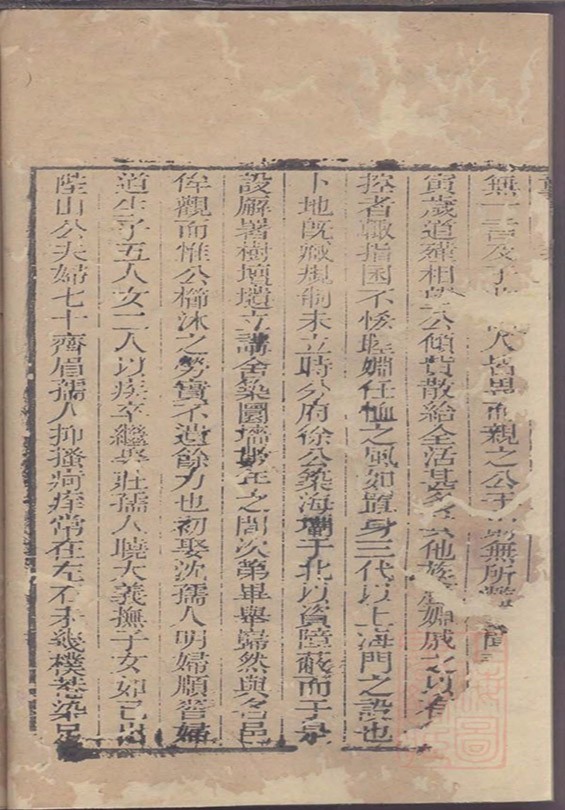 無一言及于人皆畏而親之公于無所
寅歲道殣相望公傾貲散給全活甚多他族屬姻戚之以有
控者輒指囷不恡睦婣任恤之風如置身三代以上海門之設也
卜地旣臧規制未立時分府徐公築海壩于北以資障蔽而于是
設廨署樹壇墠立講舍築圜墻年之間次第畢舉歸然與名邑
侔觀而惟公櫛沐之勞實不遺餘力也初娶沈孺人明婦順晉婦
道生子五人女二人以疾卒繼娶莊孺人曉大義撫子女如己出
陞山公夫婦七十齊眉孺人抑搔疴痒常在左右未幾樸菴染足